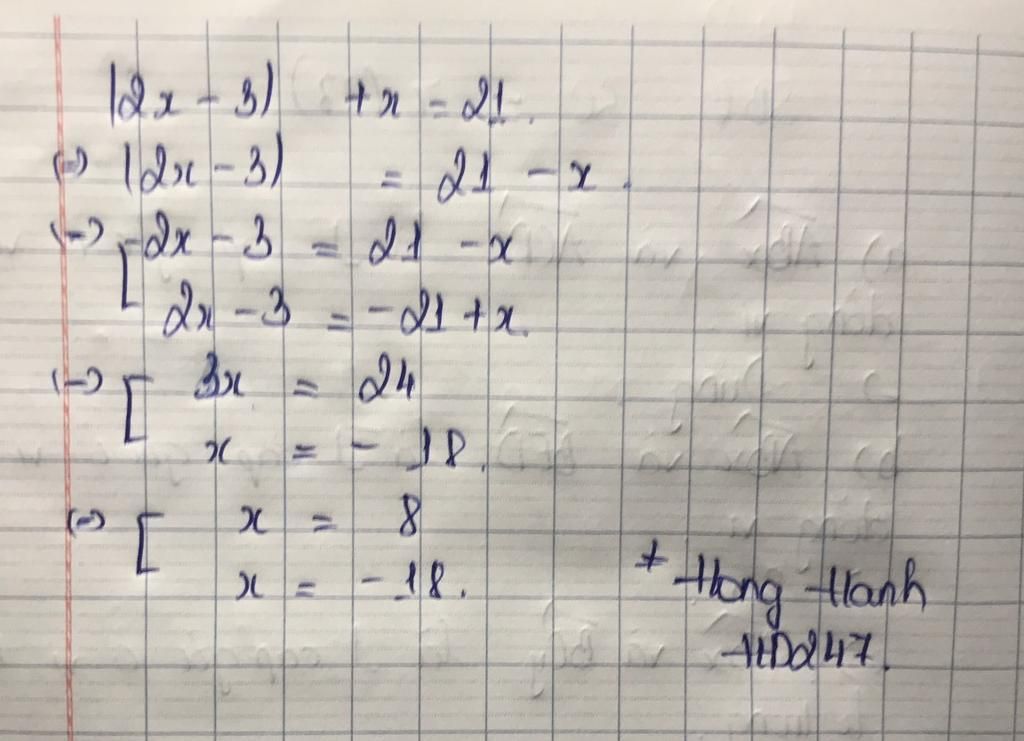 |2x - 3| + x = 21.
(=) |2x - 3| = 21 - x.
(=) [ 2x - 3 = 21 - x
2x - 3 = -21 + x.
(=) [ 3x = 24
x = - 18.
(=) [ x = 8
x = - 18.
* Hong Hanh
HD247.